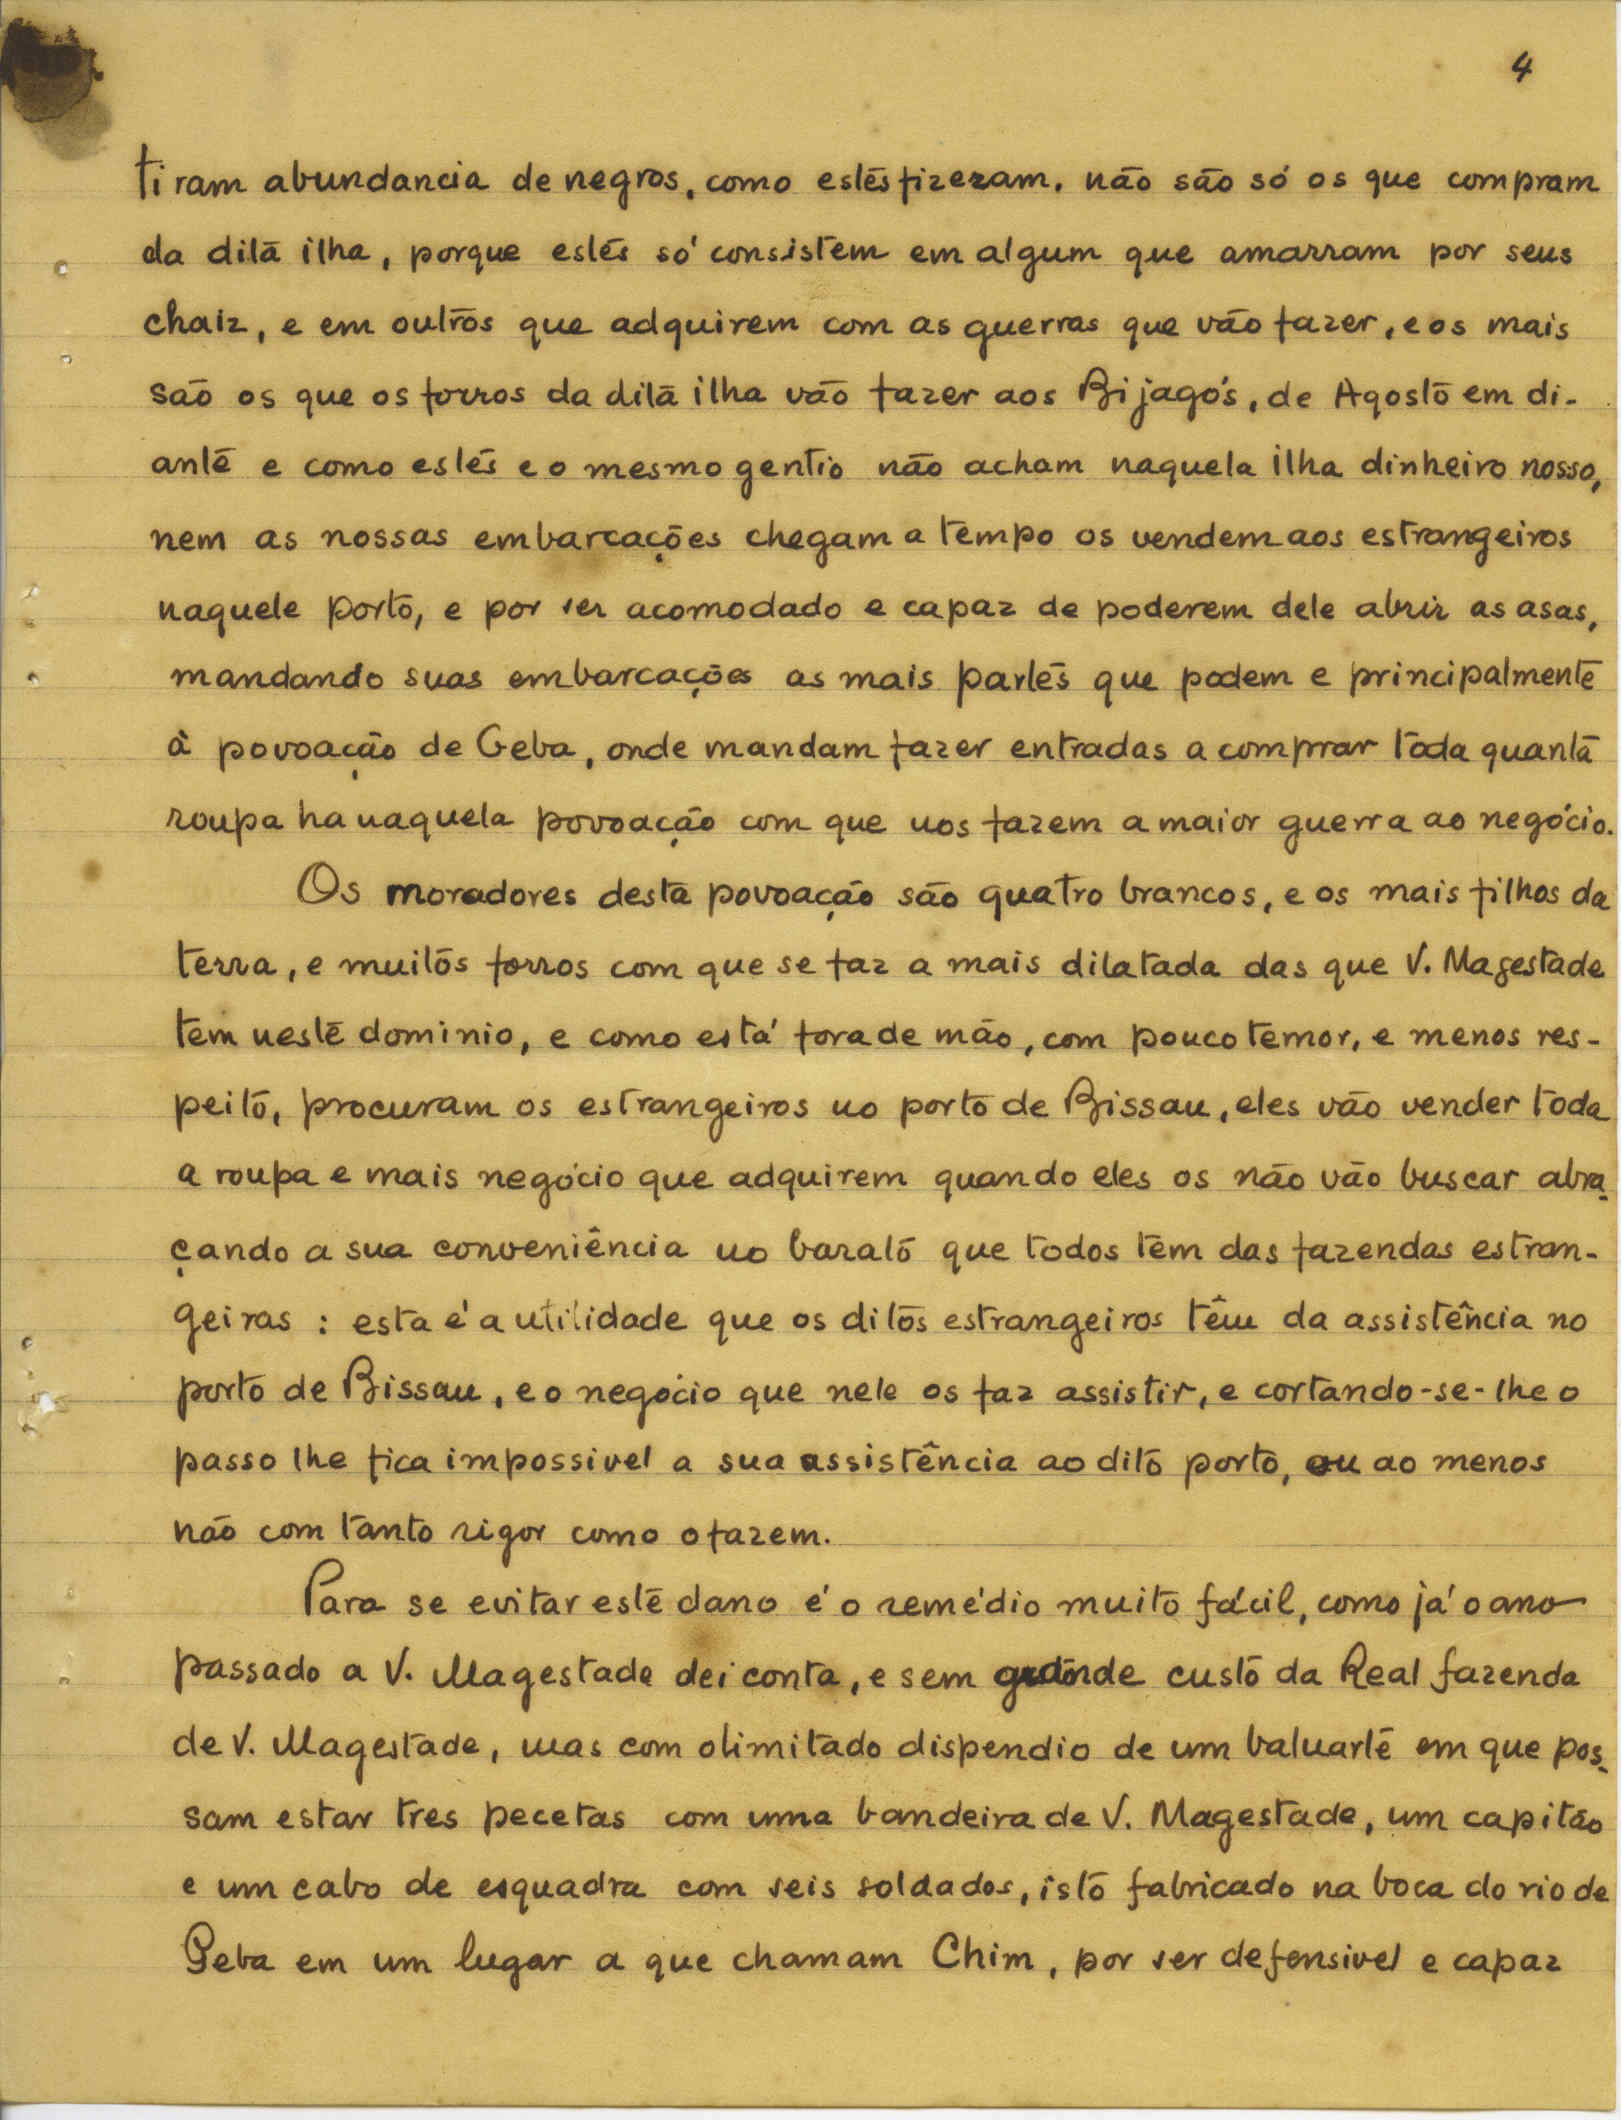 4
tiram abundancia de negros, como estes fizeram, não são só os que compram
da dita ilha, porque estes só consistem em algum que amarram por seus
chaiz, e em outros que adquirem com as guerras que vão fazer, e os mais
são os que os forros da dita ilha vão fazer aos Bijagós, de Agosto em di-
ante e como estes e o mesmo gentio não acham naquela ilha dinheiro nosso,
nem as nossas embarcações chegam a tempo os vendem aos estrangeiros
naquele porto, e por ser acomodado e capaz de poderem dele abrir as asas,
mandando suas embarcações as mais partes que podem e principalmente
à povoação de Geba, onde mandam fazer entradas a comprar toda quanta
roupa ha naquela povoação com que nos fazem a maior guerra ao negócio.
Os moradores desta povoação são quatro brancos, e os mais filhos da
terra, e muitos forros com que se faz a mais dilatada das que V. Magestade
tem neste dominio, e como está fora de mão, com pouco temor, e menos res-
peito, procuram os estrangeiros no porto de Bissau, eles vão vender toda
a roupa e mais negócio que adquirem quando eles os não vão buscar abra-
çando a sua conveniência no barato que todos têm das fazendas estran-
geiras : esta é a utilidade que os ditos estrangeiros têm da assistência no
porto de Bissau, e o negócio que nele os faz assistir, e cortando-se-lhe o
passo lhe fica impossivel a sua assistência ao dito porto, ou ao menos
não com tanto rigor como o fazem.
Para se evitar este dano é o remédio muito fácil, como já o ano
passado a V. Magestade dei conta, e sem grande custo da Real fazenda
de V. Magestade, mas com o limitado dispendio de um baluarte em que pos-
sam estar tres pecetas com uma bandeira de V. Magestade, um capitão
e um cabo de esquadra com seis soldados, isto fabricado na boca do rio de
Geba em um lugar a que chamam Chim, por ser defensivel e capaz